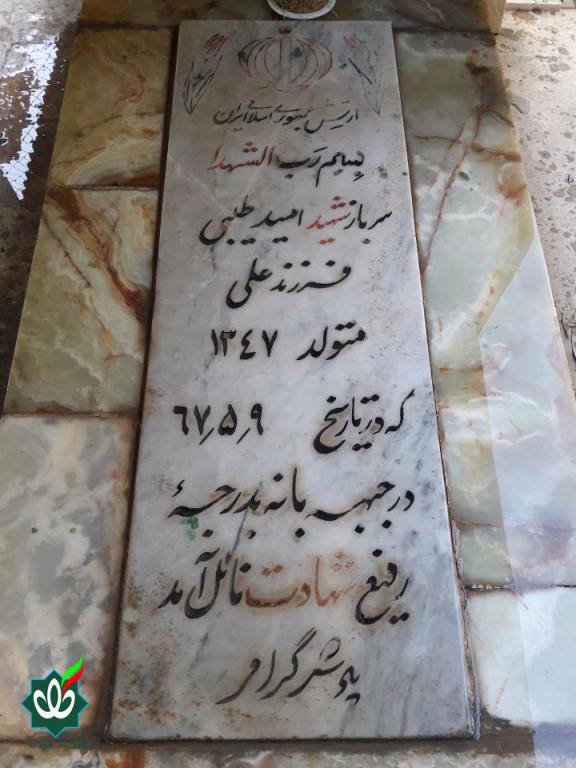 ارتش جمهوری اسلامی ایران
بسم رب الشهدا
سرباز شهید امید طیبی
فرزند علی
متولد ١٣٤٧
که در تاریخ ٦٧٫٥٫٩
در جبهه بانه بدرجهٔ
رفیع شهادت نائل آمد